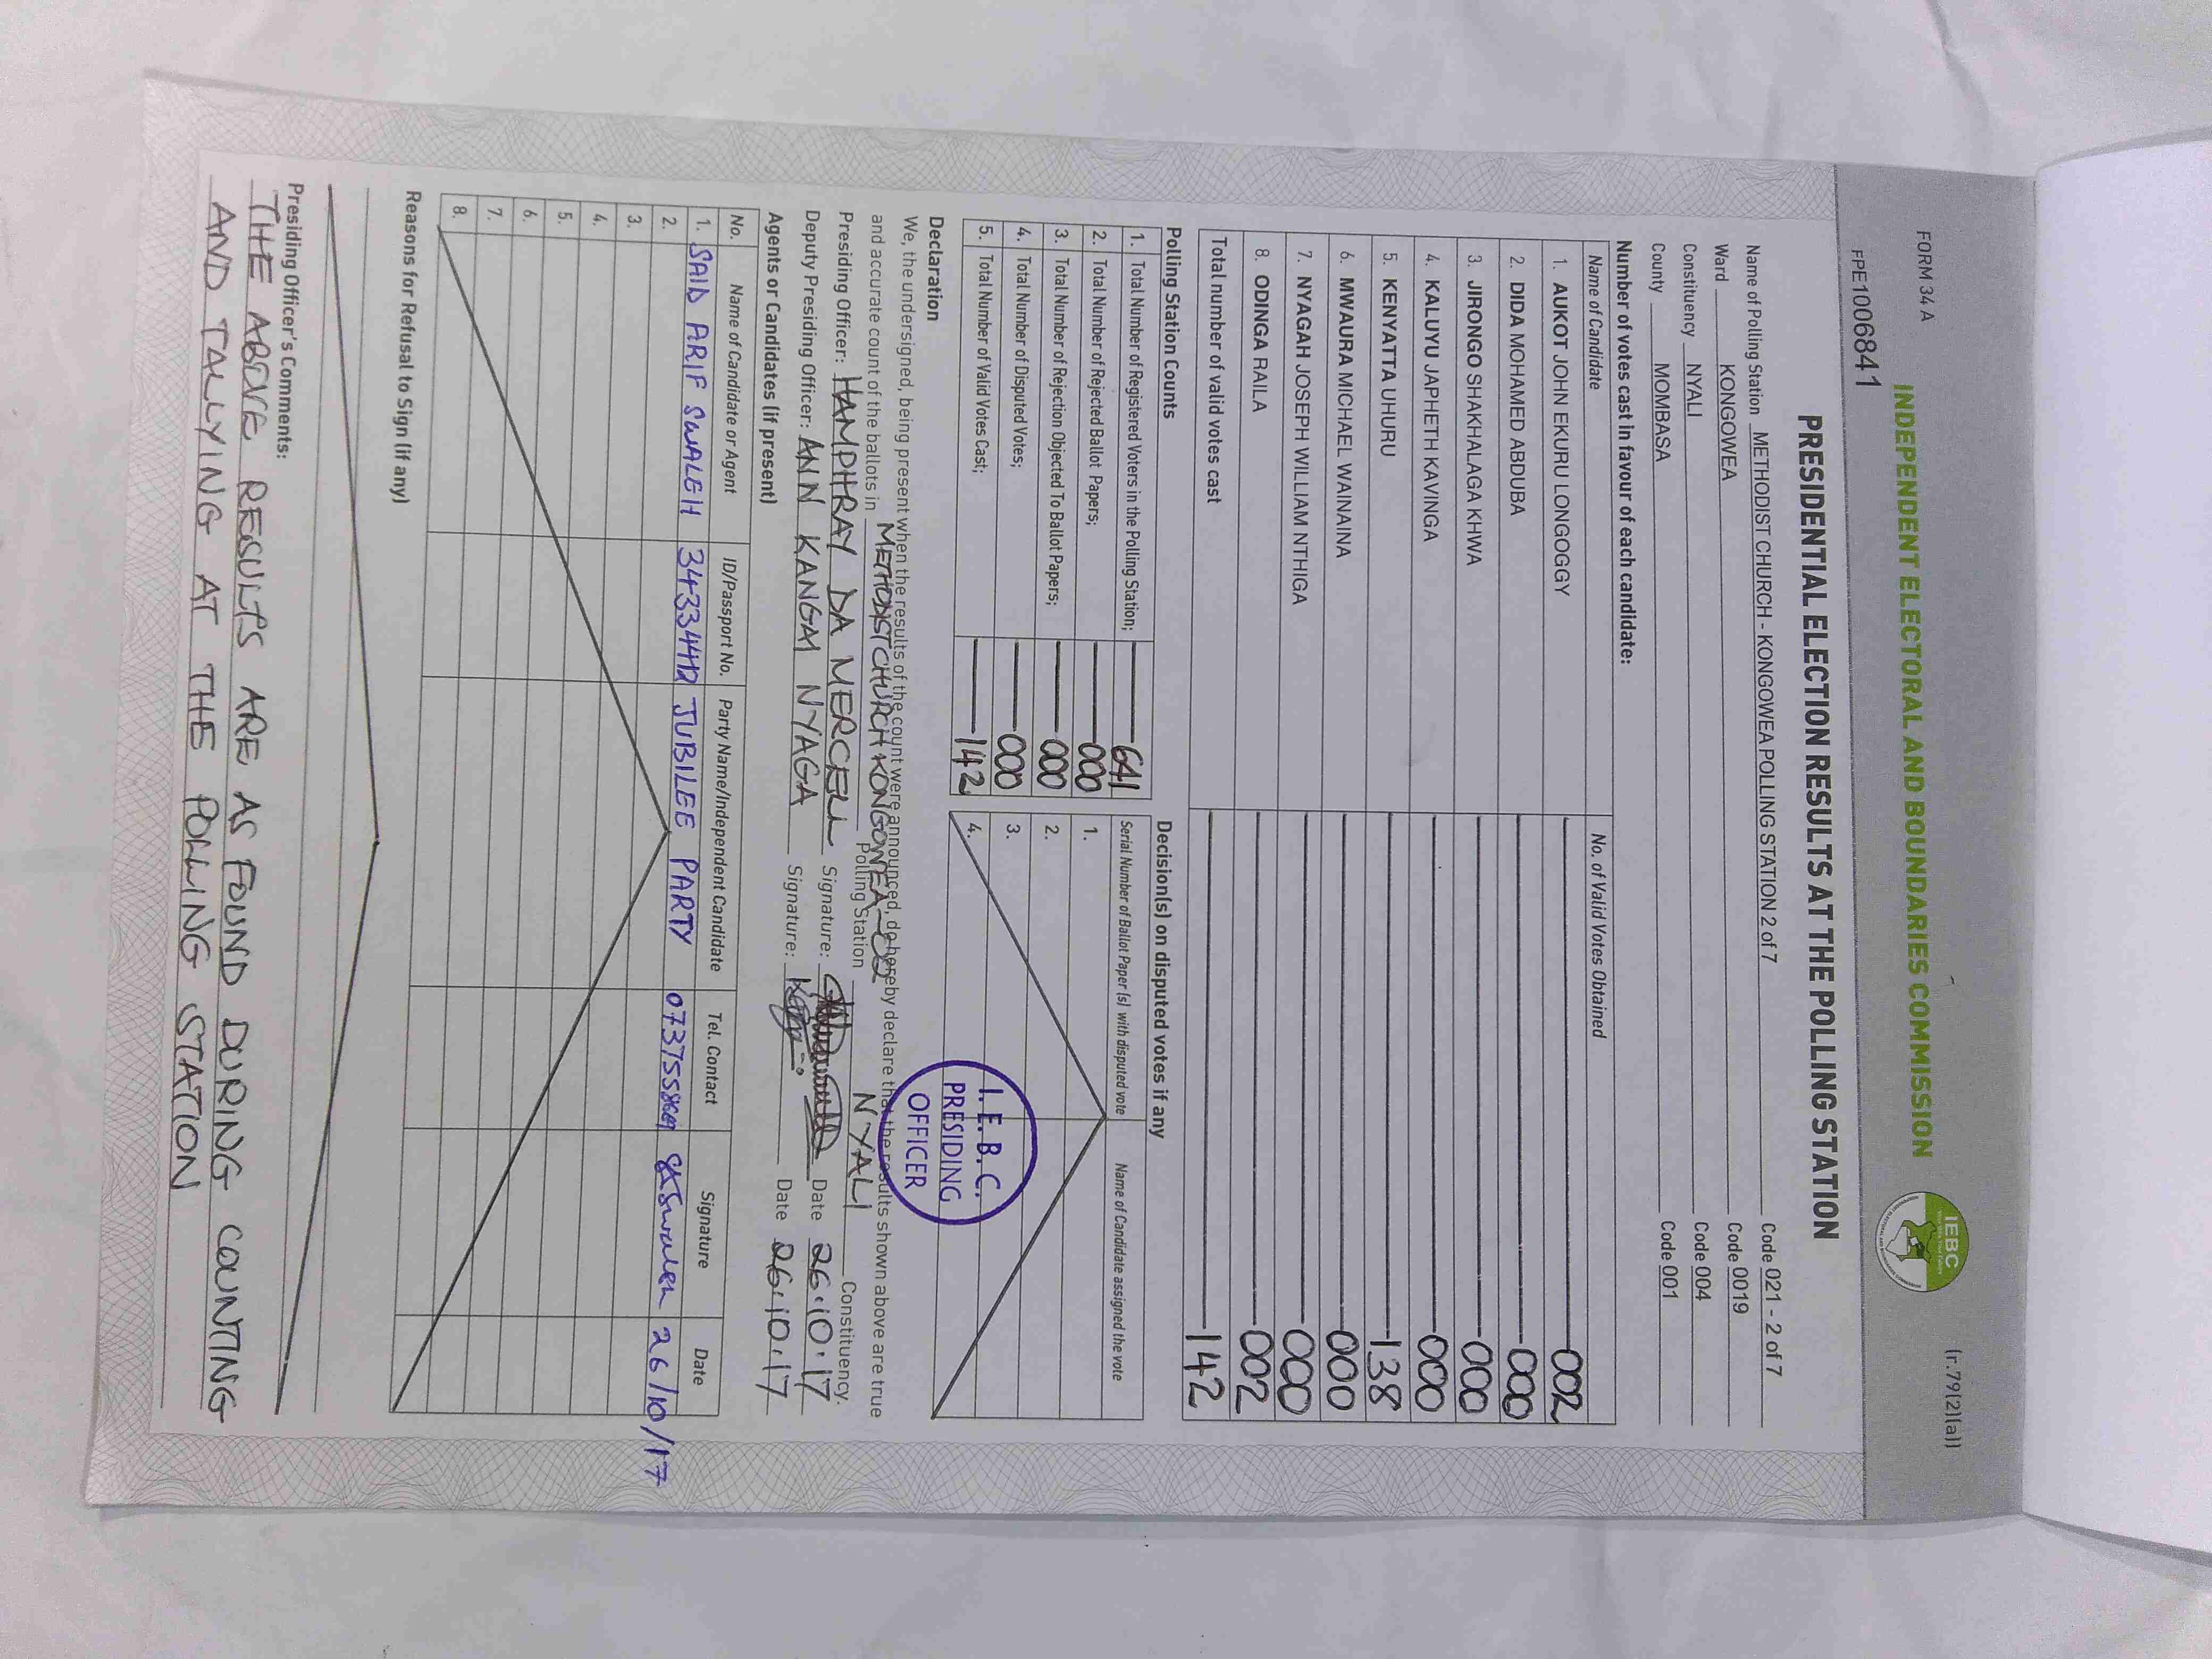 FORM 34 A
(r.79(2)(a))
INDEPENDENT ELECTORAL AND BOUNDARIES COMMISSION
IEBC
FPE1006841
PRESIDENTIAL ELECTION RESULTS AT THE POLLING STATION
Name of Polling Station METHODIST CHURCH - KONGOWEA POLLING STATION 2 of 7 Code 021 - 2 of 7
Ward KONGOWEA Code 0019
Constituency NYALI Code 004
County MOMBASA Code 001
Number of votes cast in favour of each candidate:
Name of Candidate No. of Valid Votes Obtained
1. AUKOT JOHN EKURU LONGOGGY 002
2. DIDA MOHAMED ABDUBA 000
3. JIRONGO SHAKHALAGA KHWA 000
4. KALUYU JAPHETH KAVINGA 000
5. KENYATTA UHURU 138
6. MWAURA MICHAEL WAINAINA 000
7. NYAGAH JOSEPH WILLIAM NTHIGA 000
8. ODINGA RAILA 002
Total number of valid votes cast 142
Polling Station Counts
1. Total Number of Registered Voters in the Polling Station; 641
2. Total Number of Rejected Ballot Papers; 000
3. Total Number of Rejection Objected To Ballot Papers; 000
4. Total Number of Disputed Votes; 000
5. Total Number of Valid Votes Cast; 142
Decision(s) on disputed votes if any
Serial Number of Ballot Paper (s) with disputed vote Name of Candidate assigned the vote
1.
2.
3.
4.
I.E.B.C.
PRESIDING
OFFICER
Declaration
We, the undersigned, being present when the results of the count were announced, do hereby declare that the results shown above are true
and accurate count of the ballots in METHODIST CHURCH KONGOWEA - 002 Polling Station NYALI Constituency.
Presiding Officer: HAMPHRAY DA MERCELL Signature: Date 26.10.17
Deputy Presiding Officer: ANN KANGAI NYAGA Signature: Date 26.10.17
Agents or Candidates (if present)
No. Name of Candidate or Agent ID/Passport No. Party Name/Independent Candidate Tel. Contact Signature Date
1. SAID ARIF SWALEH JUBILEE PARTY 26/10/17
2.
3.
4.
5.
6.
7.
8.
Reasons for Refusal to Sign (if any)
Presiding Officer's Comments:
THE ABOVE RESULTS ARE AS FOUND DURING COUNTING
AND TALLYING AT THE POLLING STATION